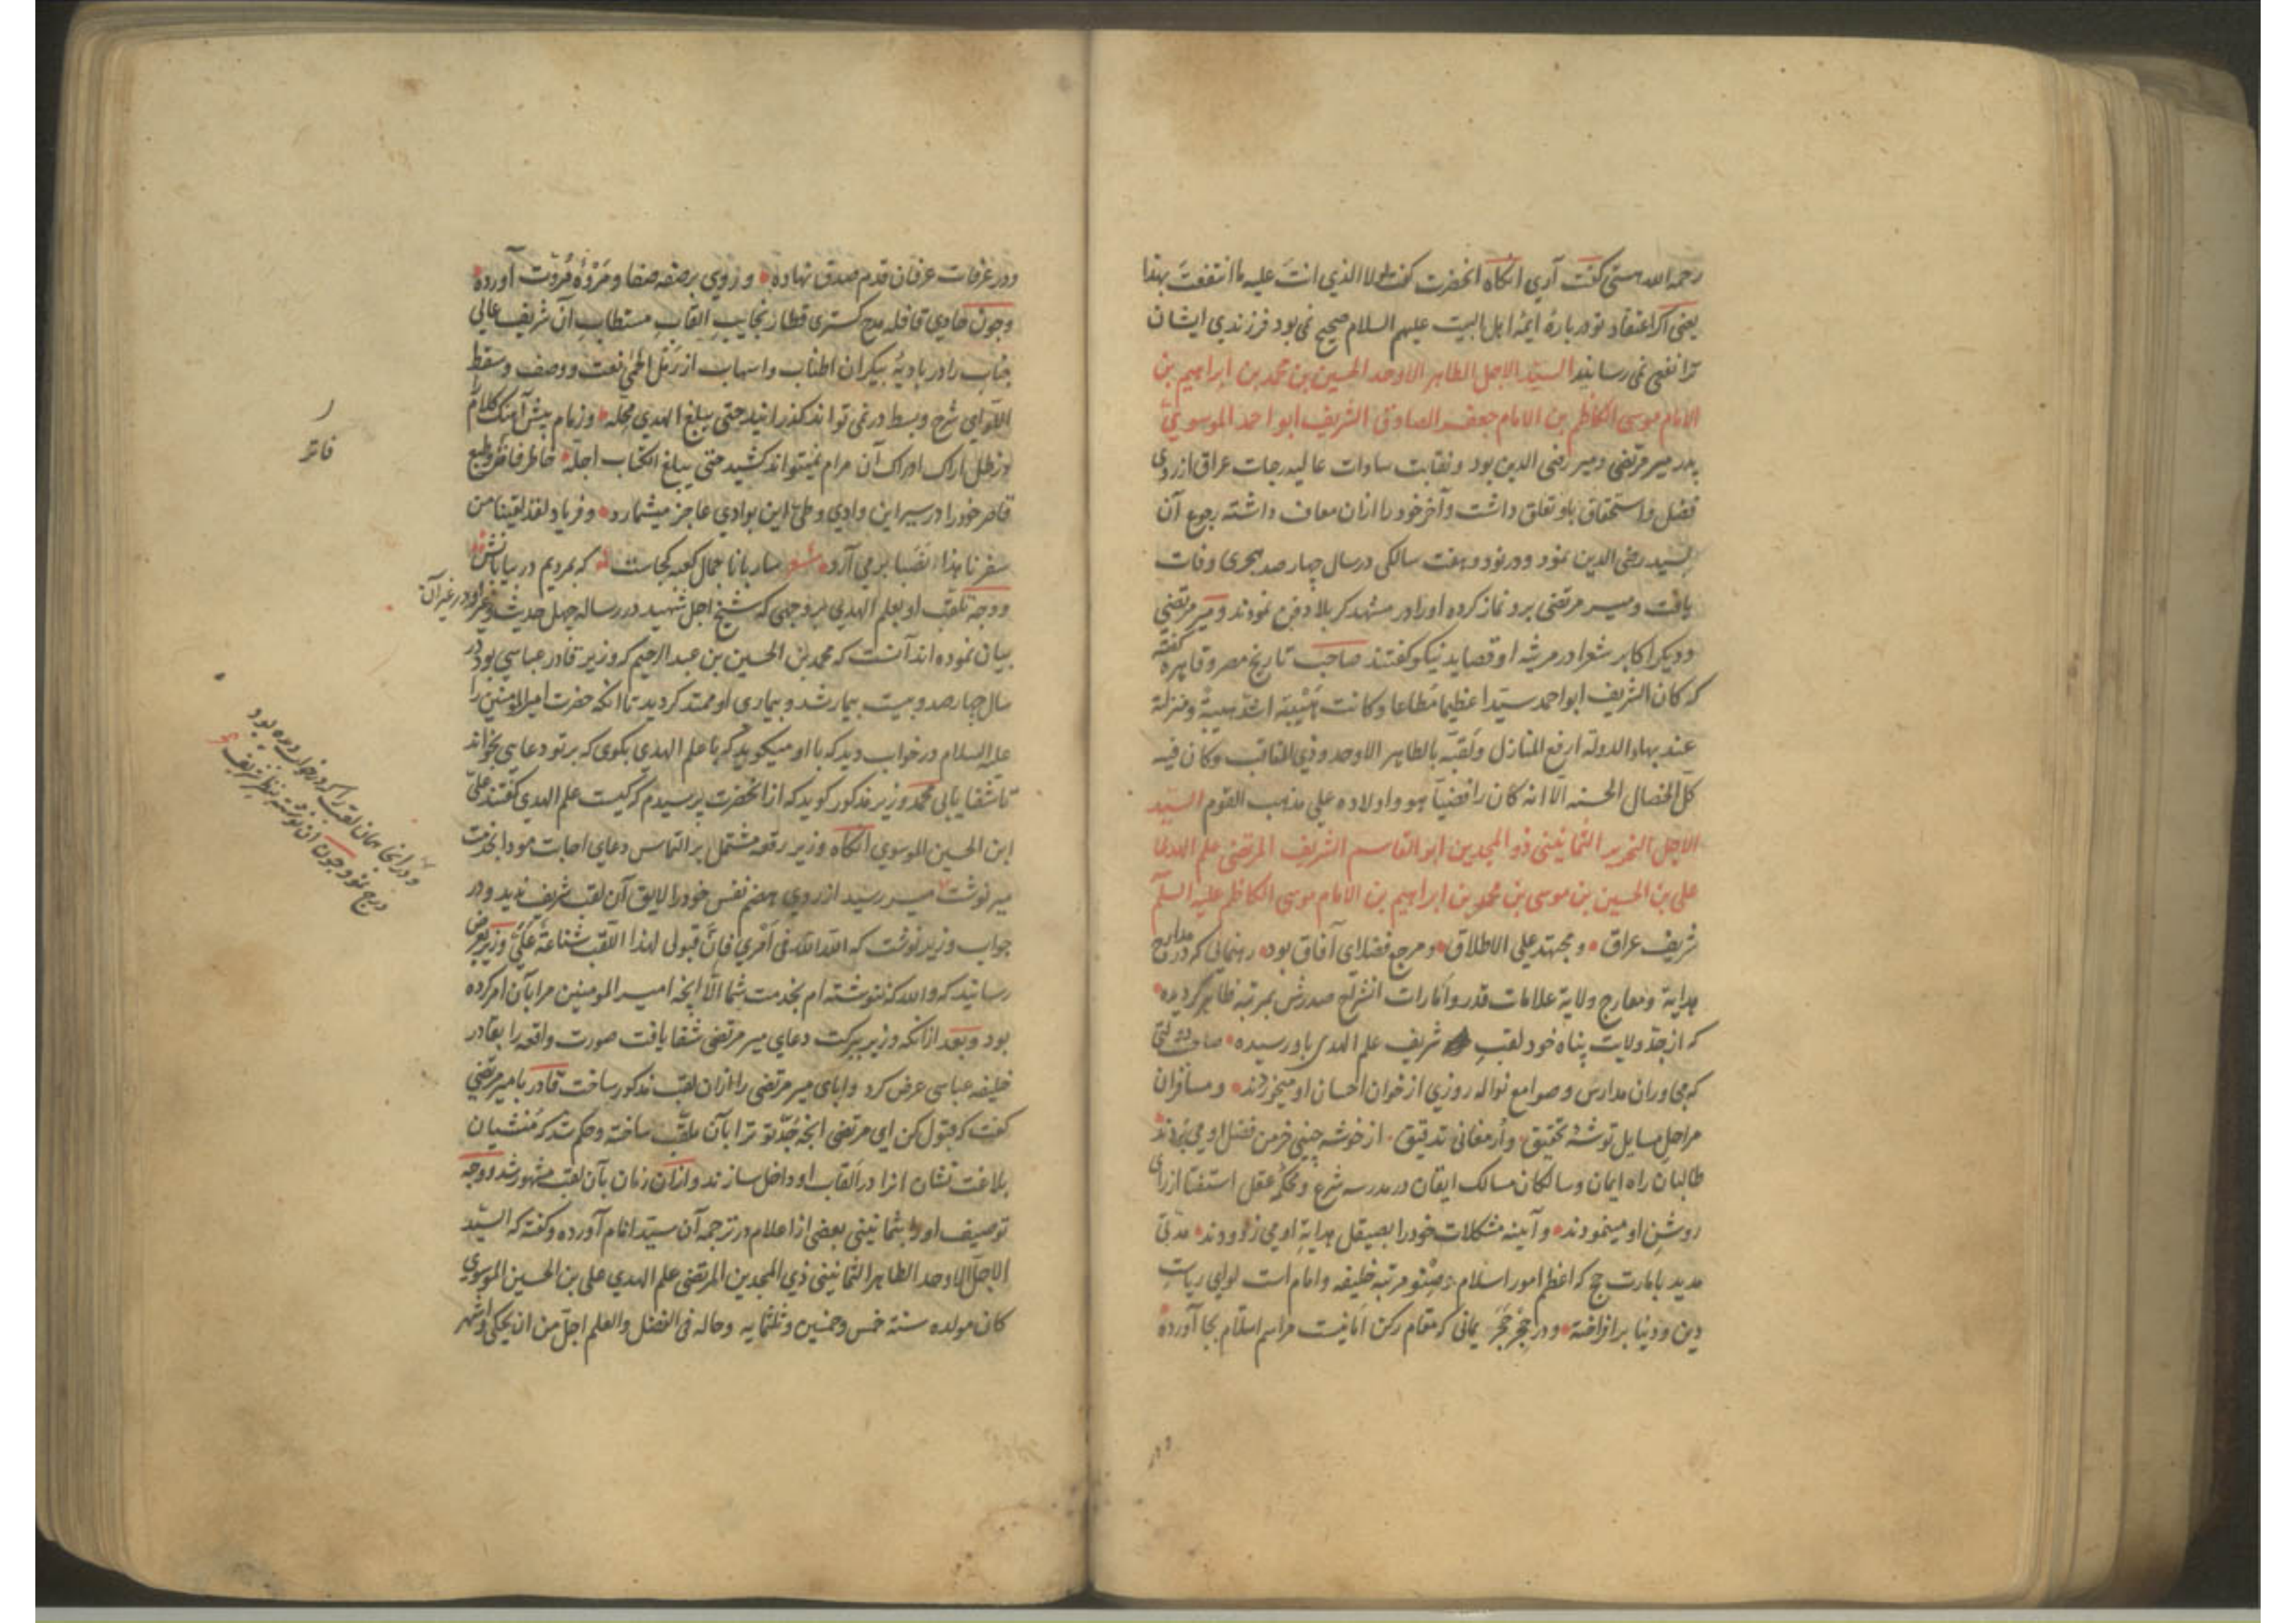 رحمه الله هستی گفت آری انکاه انحضرت گفت لولا الذی انت علیه ما انتفعت بهذا
یعنی اکر اعتقاد تو درباره ایمه اهل البیت علیهم السلام صحیح نمی بود فرزندی ایشان
ترا نفعی نمی رسانید السید الاجل الطاهر الاوحد الحسین بن محمد بن ابراهیم بن
الامام موسی الکاظم بن الامام جعفر الصادق الشریف ابو احمد الموسوی
پدر میر مرتضی ومیر رضی الدین بود و نقابت سادات عالیدرجات عراق از روی
فضل و استحقاق باو تعلق داشت وآخر خود را ازان معاف داشته رجوع آن
بسید رضی الدین نمود ودر نود وهفت سالکی در سال چهار صد هجری وفات
یافت و میر مرتضی برو نماز کرده اورا در مشهد کربلا دفن نمودند و میر مرتضی
ودیکر اکابر شعرا در مرثیه او قصاید نیکو گفتند صاحب تاریخ مصر و قاهره گفته
که کان الشریف ابو احمد سیدا عظیما مطاعا وکانت هیبته اشد هیبة ومنزلة
عند بهاء الدوله ارفع المنازل ولقبه بالطاهر الاوحد وذی المناقب وکان فیه
کل الخصال الحسنه الا انه کان رافضیا هو واولاده علی مذهب القوم السید
الاجل النحریر الثمانینی ذو المجدین ابو القاسم الشریف المرتضی علم الهدی
علی بن الحسین بن موسی بن محمد بن ابراهیم بن الامام موسی الکاظم علیه السلم
شریف عراق و مجتهد علی الاطلاق ومرجع فضلای آفاق بود رهنمائی که در مدارج
هدایة ومعارج ولایة علامات قدر و امارات انشراح صدرش بمرتبه ظاهر کردیده
که از جد ولایت پناه خود لقب شریف علم الهدی باو رسیده صاحب دولتی
که مجاوران مدارس و صوامع نواله روزی از خوان احسان او میخوردند و مسافران
مراحل مسایل توشه تحقیق وارمغانی تدقیق از خوشه چینی خرمن فضل او می بردند
طالبان راه ایمان وسالکان مسالک ایقان در مدرسه شرع ومحکمه عقل استفتا از رای
روشن او مینمودند وآینه مشکلات خود را بصیقل هدایة او می زدودند مدتی
مدید بامارت حج که اعظم امور اسلام وصنو مرتبه خلیفه و امام است لوای ریاست
دین و دنیا برافراخته ودر حجر یمانی که مقام رکن امانیست مراسم اسلام بجا آورده
ودر عرفات عرفان قدم صدق نهاده وروی بر صفه صفا ومروه مروت آورده
وچون حادی قافله مدح کستری قطار نجایب القاب مستطاب آن شریف عالی
جناب را در بادیه بیکران اطناب واسهاب از رمل نعت ووصف وسقط
اللوای شرح وبسط در نمی تواند گذرانید حتی یبلغ الهدی محله وزمام پیش آهنگ کلام را
آن مرام نمیتواند کشید حتی یبلغ الکتاب اجله خاطر فاتر وطبع
قاصر خود را در سیر این وادی وطی این بوادی عاجز میشمارد وفریاد لقد لقینا من
سفرنا هذا نصبا برمی آرد شعر ساربانا جمال کعبه کجاست که بمردیم در بیابانش
ووجه تلقب او بعلم الهدی بر وجهی که شیخ اجل شهید در رساله چهل حدیث وغیر او در غیر آن
بیان نموده اند آنست که محمد بن الحسین بن عبد الرحیم که وزیر قادر عباسی بود در
سال چهار صد وبیست بیمار شد و بیماری او ممتد کردید تا انکه حضرت امیر المومنین را
علیه السلام در خواب دید که با او میکوید که با علم الهدی بکوی که بر تو دعایی بخواند
تا شفا یابی محمد وزیر مذکور کوید که از انحضرت پرسیدم که کیست علم الهدی گفتند علی
ابن الحسین الموسوی انکاه وزیر رقعه مشتمل بر التماس دعای اجابت مودا بخدمت
میر نوشت میر سید از روی هضم نفس خود را لایق آن لقب شریف ندید ودر
جواب وزیر نوشت که الله الله فی امری فان قبولی لهذا اللقب شناعة علی وزیر بعرض
رسانید که والله که ننوشته ام بخدمت شما الا انچه امیر المومنین مرا بآن امر کرده
بود وبعد از انکه وزیر ببرکت دعای میر مرتضی شفا یافت صورت واقعه را بقادر
خلیفه عباسی عرض کرد وابای میر مرتضی را ازان لقب مذکور ساخت قادر با میر مرتضی
گفت که قبول کن ای مرتضی انچه جد تو ترا بآن ملقب ساخته وحکم شد که منشیان
بلاغت نشان انرا در القاب او داخل سازند وازان زمان بآن لقب مشهور شد ووجه
توصیف او را بثمانینی بعضی از اعلام در ترجمه آن سید انام آورده وگفته که السید
الاجل الاوحد الطاهر الثمانینی ذی المجدین المرتضی علم الهدی علی بن الحسین الموسوی
کان مولده سنة خمس وخمسین وثلثمایه وحاله فی الفضل والعلم اجل من ان یحکی واشهر
فاتر
ودر انجا همان لقب را که در خواب دیده بود
درج نمود چون ان نوشته بنظر شریف